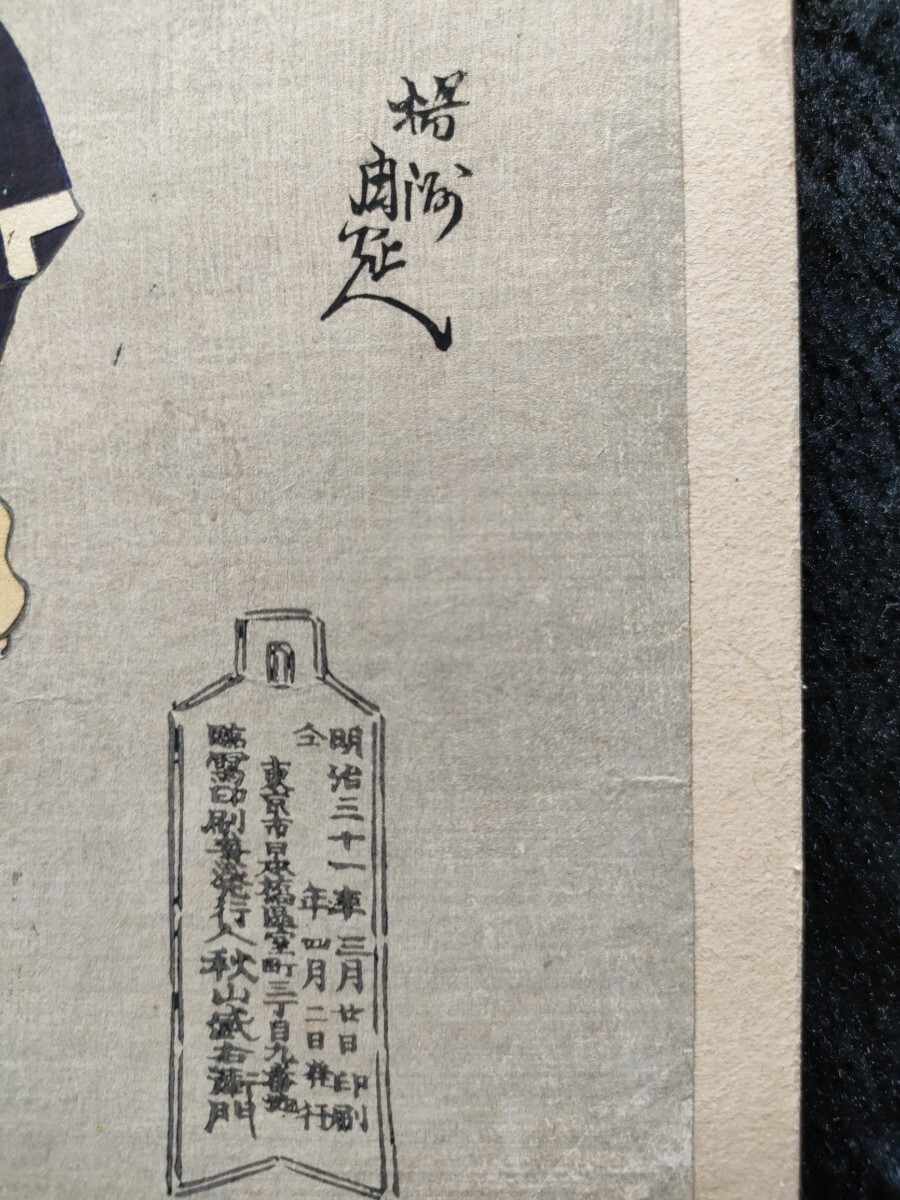 楊洲
周延
明治三十一年三月廿日印刷
仝年四月二日発行
東京市日本橋區室町三丁目九番地
臨写印刷兼発行人秋山武右衛門